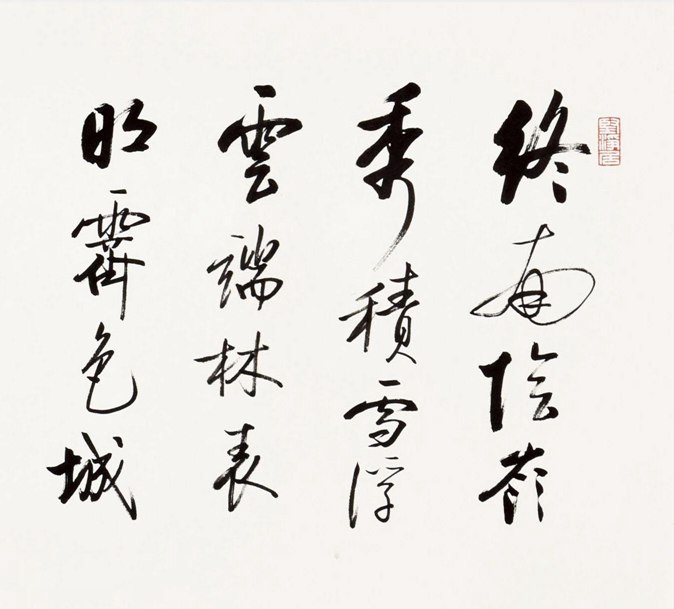 終南陰嶺
秀積雪浮
雲端林表
明霽色城